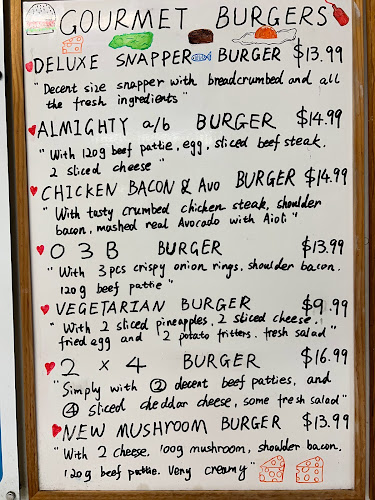 GOURMET BURGERS
DELUXE SNAPPER BURGER $13.99
"Decent size snapper with breadcrumbed and all
the fresh ingredients"
ALMIGHTY a/b BURGER $14.99
"With 120g beef pattie, egg, sliced beef steak,
2 sliced cheese"
CHICKEN BACON & Avo BURGER $14.99
"With tasty crumbed chicken steak, shoulder
bacon, mashed real Avocado with Aioli"
O 3 B BURGER $13.99
"With 3 pcs crispy onion rings, shoulder bacon.
120g beef pattie"
VEGETARIAN BURGER $9.99
"With 2 sliced pineapples, 2 sliced cheese,
fried egg and 2 potato fritters. fresh salad"
2 x 4 BURGER $16.99
"Simply with 2 decent beef patties, and
4 sliced cheddar cheese, some fresh salad"
NEW MUSHROOM BURGER $13.99
"With 2 cheese, 100g mushroom, shoulder bacon.
120g beef pattie. Very creamy"